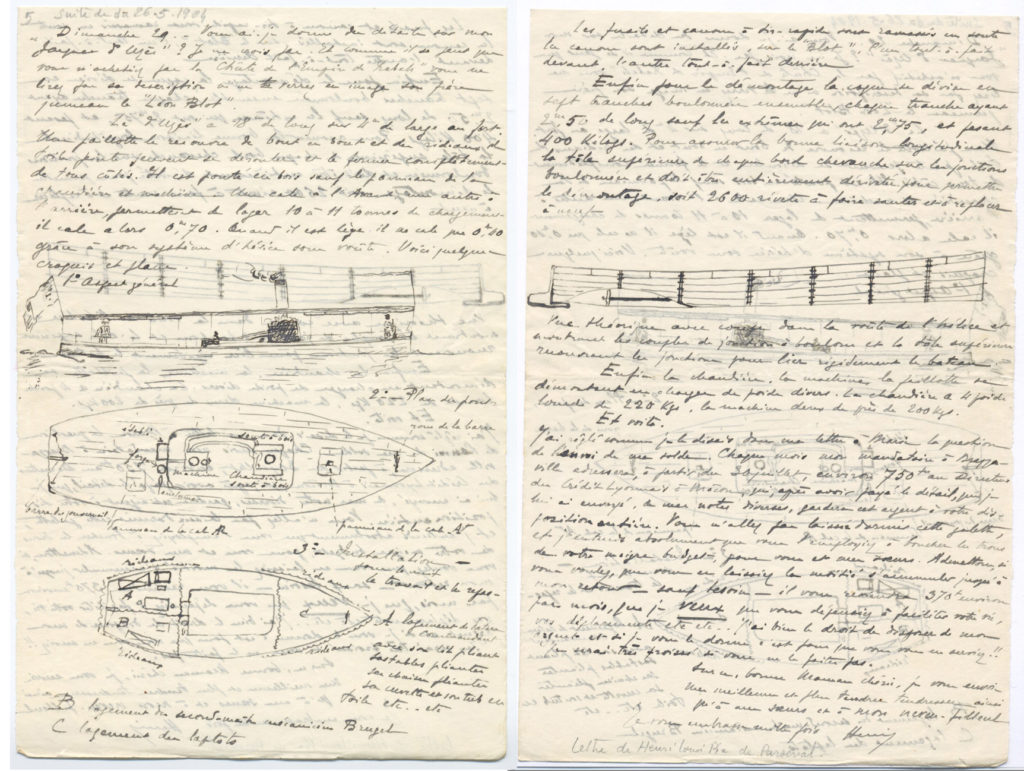 5 Suite du 26-5-1904
Dimanche 29 - Vous ai-je donné des détails sur mon
"Jacques d'Uzès"? Je ne crois pas. Et comme il se peut que
vous n'achetiez pas la "Chute de l'Empire de Rabeh" vous ne
lirez pas sa description ni ne verrez en image son frère
jumeau le "Léon Blot"
Le "d'Uzès" a 18m de long sur 4 de large au fort
paillotte le recouvre de bout en bout et des rideaux de
toile peuvent se dérouler et le ferment complètement
de tous côtés. Il est ponté en bois sauf le panneau de la
chaudière et machine. Une cale à l'Avant, une autre à
l'arrière permettent de loger 10 à 11 tonnes de chargement
il cale alors 0m70. Quand il est lège il ne cale que 0m40
grâce à son système d'hélice sous voûte. Voici quelques
croquis et plans.
1º Aspect général
2º Plan du pont
roue de la barre
établi
forge
machine
Chaudière
soute à bois
soute à bois
panneau de la cale AR
panneau de la cale AV
3º Installation
pour la nuit
le travail et le repos
rideaux
rideaux
A
B
C
rideaux
rideaux
A logement du
Commandant
avec son lit pliant
ses tables pliantes
sa chaise pliante
sa cuvette et son tub en
toile etc.. etc
B logement du second-maître mécanicien Bruget
C logement des laptots
les fusils et canon à tir rapide sont ramassés en soute
les canons sont installés, sur le "Blot", l'un tout-à-fait
devant, l'autre tout-à-fait derrière
Enfin pour le démontage la coque se divise en
sept tranches boulonnées ensemble, chaque tranche ayant
2m50 de long sauf les extrêmes qui ont 2m,75, et pesant
400 Kilogs. Pour assurer la bonne liaison longitudinale
la tôle supérieure de chaque bord chevauche sur les jonctions
boulonnées et doit être entièrement dérivée pour permettre
le démontage, soit 2600 rivets à faire sauter et à replacer
à neuf
Vue théorique avec coupe dans la voûte de l'hélice et
montrant les couples de jonction à boulons et la tôle supérieure
recouvrant les jonctions pour lier rigidement le bateau
Enfin la chaudière, la machine, la paillotte se
démontent en charges de poids divers. La chaudière a 4 poids
lourds de 220 Kgs, la machine deux de près de 200 Kgs.
Et voilà.
J'ai réglé comme je le disais dans une lettre à Marie la question
de l'envoi de ma solde. Chaque mois mon mandataire à Brazza-
ville adressera, à partir du 30 juillet, environ 750frs au Directeur
du Crédit Lyonnais à Mâcon, qui, après avoir payé le détail que je
lui ai envoyé, de mes notes diverses, gardera cet argent à votre dis-
position entière. Vous n'allez pas laisser dormir cette galette,
et j'entends absolument que vous l'employiez à boucher les trous
de votre maigre budget, pour vous et mes sœurs. Admettons, si
vous voulez, que vous en laissiez la moitié s'accumuler jusqu'à
mon retour - sauf besoin - il vous reste 370f environ
par mois, que je veux que vous dépensiez à
vos déplacements etc etc. J'ai bien le droit de disposer de mon
argent et si je vous le donne c'est pour que vous vous en serviez!!
Je serais très froissé si vous ne le faisiez pas.
Sur ce, bonne Maman chérie, je vous envoie
mes meilleures et plus tendres tendresses ainsi
qu'à mes sœurs et à mon neveu-filleul
Je vous embrasse mille fois Henry
Lettre de Henri Louis Pie de Parseval.